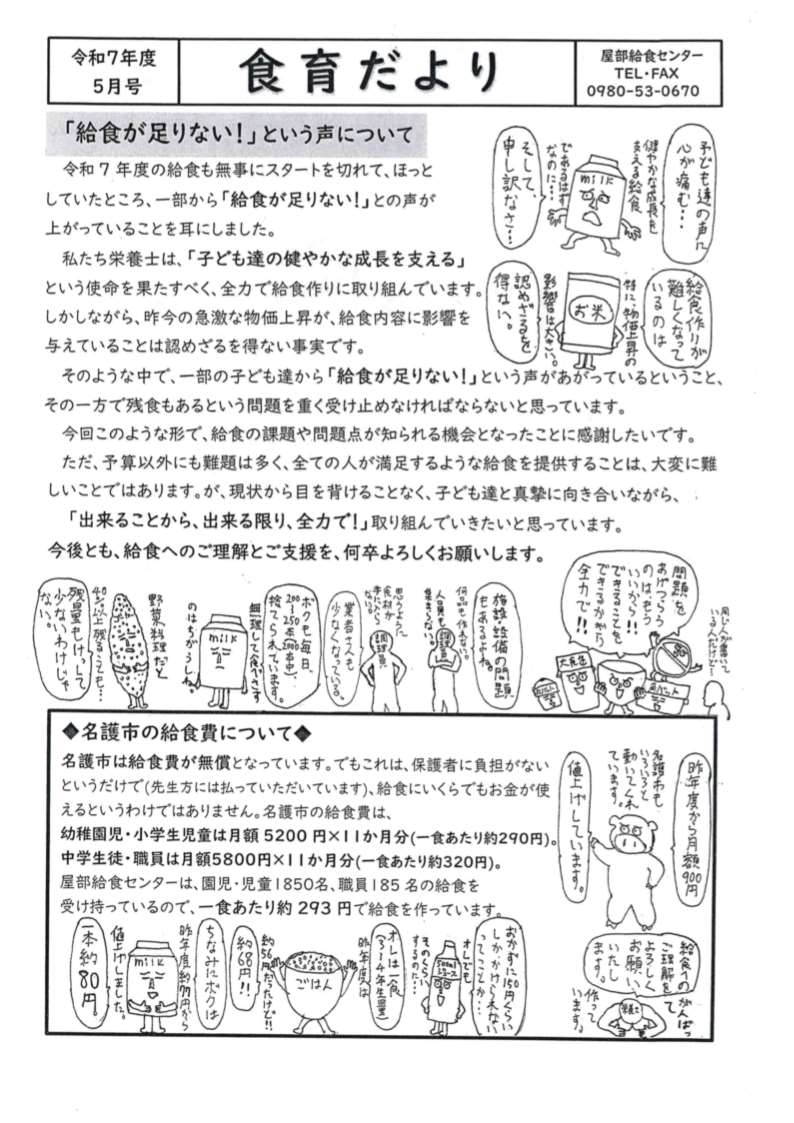 令和7年度
5月号
食育だより
屋部給食センター
TEL・FAX
0980-53-0670
「給食が足りない!」という声について
令和7年度の給食も無事にスタートを切れて、ほっと
していたところ、一部から「給食が足りない!」との声が
上がっていることを耳にしました。
私たち栄養士は、「子ども達の健やかな成長を支える」
という使命を果たすべく、全力で給食作りに取り組んでいます。
しかしながら、昨今の急激な物価上昇が、給食内容に影響を
与えていることは認めざるを得ない事実です。
そのような中で、一部の子ども達から「給食が足りない!」という声があがっているということ、
その一方で残食もあるという問題を重く受け止めなければならないと思っています。
今回このような形で、給食の課題や問題点が知られる機会となったことに感謝したいです。
ただ、予算以外にも難題は多く、全ての人が満足するような給食を提供することは、大変に難
しいことではあります。が、現状から目を背けることなく、子ども達と真摯に向き合いながら、
「出来ることから、出来る限り、全力で!」取り組んでいきたいと思っています。
今後とも、給食へのご理解とご支援を、何卒よろしくお願いします。
子ども達の声に
心が痛む…
健やかな成長を
支える給食
であるはず
なのに…
milk
そして、
申し訳なさ…
給食作りが
難しくなって
いるのは
特に、物価上昇の
影響は大きい。
お米
認めざるを
得ない。
同じ人が書いて
いる人だけど〜
問題を
あげつらう
のはもう
いいから!!
できることを
できるかぎり
全力で!!
大食缶
施設・設備の問題
もあるよね。
何品も作れない。
人員も
集まらない。
調理員
思うように
食材が
手に入らない。
調理員
業者さんも
少なくなっている。
ボクも毎日、
200〜250本(2000本中)、
捨てられています。
無理して食べさす
のはちがうしね。
milk
野菜料理だと
40%以上残ることも…
残量もけっして
少ないわけじゃ
ない。
◆名護市の給食費について◆
名護市は給食費が無償となっています。でもこれは、保護者に負担がない
というだけで(先生方には払っていただいています)、給食にいくらでもお金が使
えるというわけではありません。名護市の給食費は、
幼稚園児・小学生児童は月額5200円×11か月分(一食あたり約290円)。
中学生徒・職員は月額5800円×11か月分(一食あたり約320円)。
屋部給食センターは、園児・児童1850名、職員185名の給食を
受け持っているので、一食あたり約293円で給食を作っています。
昨年度から月額900円
名護市も
いろいろと
動いてくれ
ています。
値上げしています。
おかずに150円くらい
しかかけられない
ってことか…
オレでも
そのくらい
するのに…
500ml
ソース
オレは一食
(3・4年生量)
昨年度は
約56円だったけど!!
ごはん
約68円!!
ちなみにボクは
昨年度約77円から
値上げしました。
milk
一本約80円。
給食への
ご理解を
よろしく
お願い
いたし
ます。
がんばって
作って
います。